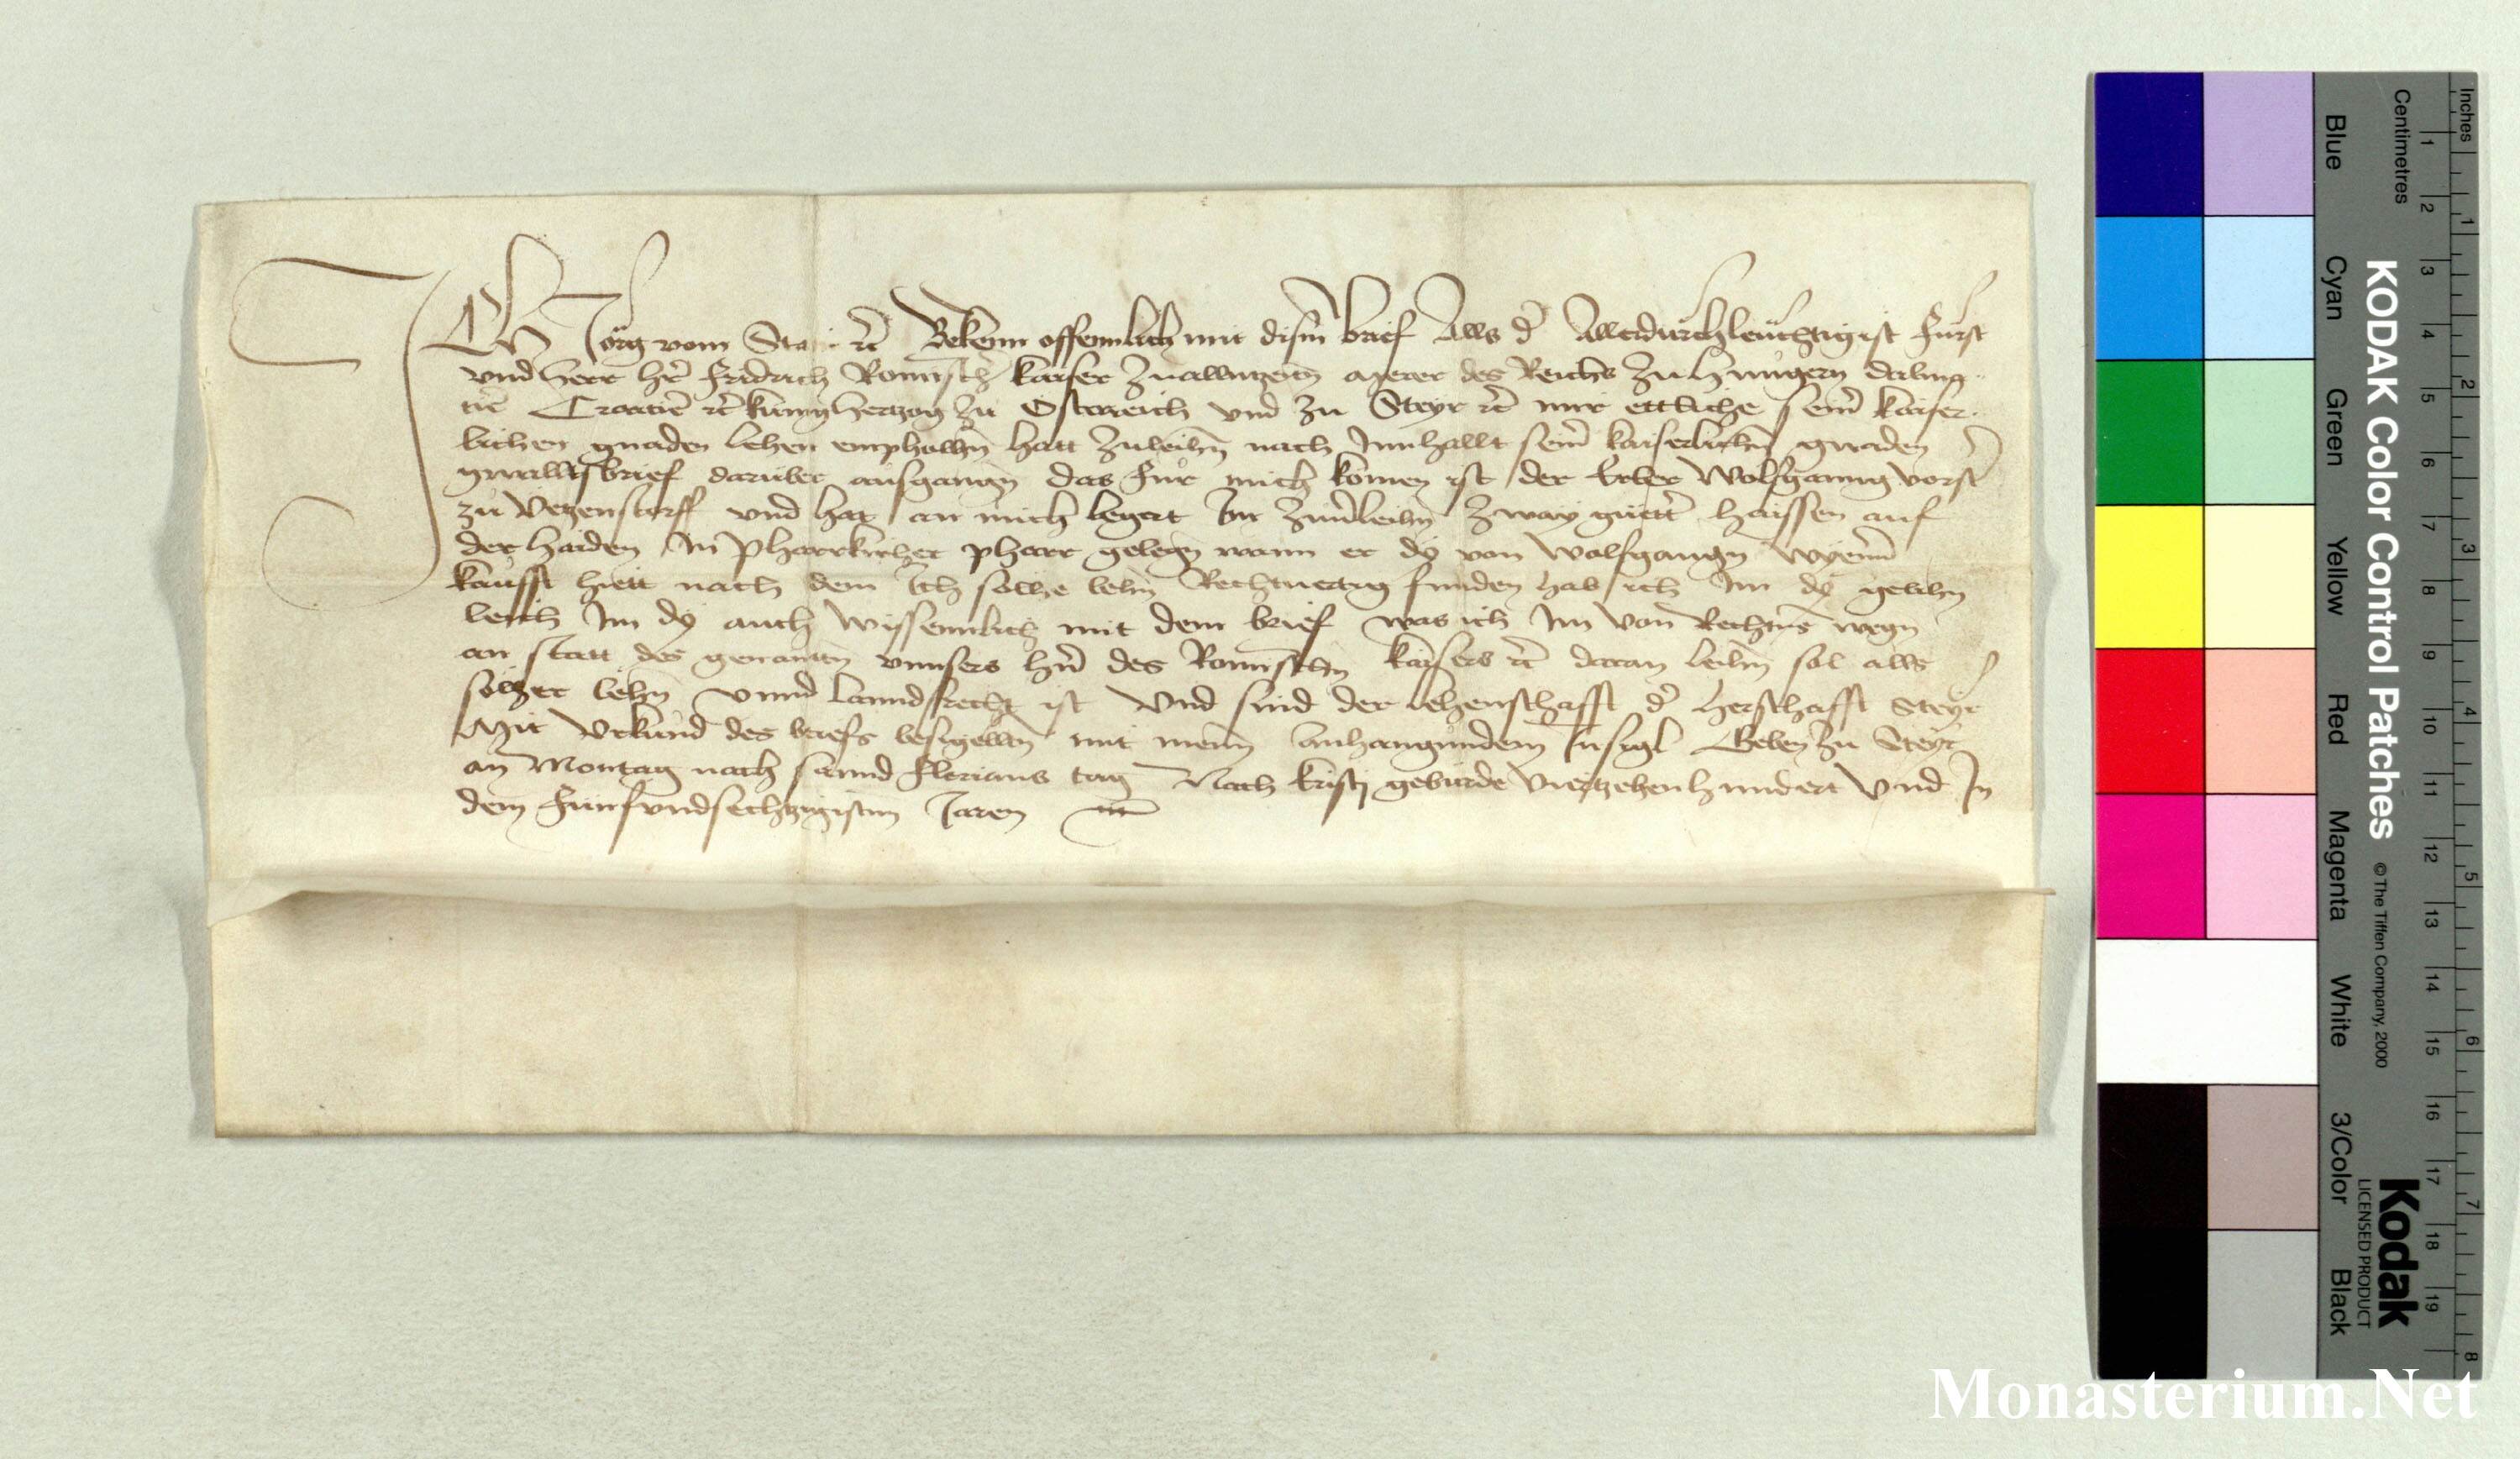 ICh Jörg vom Stain etc̄ Bekenn offennlich mit dism̄ brief Alls d̄ Allerdurchleuchtigist Fürst
vnd Herr h̄r Fridrich Romischer kaiser Zuallntzeitn̄ merer des Reichs Zu Hunngern dalma
tiē Croatiē etc̄ kunig Hertzog Zu Osterreich vnd Zu Steyr etc̄ mir ettliche seinr̄ kaiser
lichen gnaden lehen emphollhn̄ hatt Zuleihn̄ nach Innhallt seinr̄ kaiserlichn̄ gnaden
gwalltsbrief darüber ausgangn̄ das Für mich komen ist der Erber Wolfganng vorst
zu Vetzenstorff vnd hat an mich begert Im Zuuerleihn̄ Zway güettr̄ haissen auf
der haiden In Pharrkircher pharr gelegn̄ wann er dy von Wolfgangn̄
kaufft hiett nach dem Ich solhe lehn̄ Rechtuertig funden hab ich Im dy gelihn̄
leich Im dy auch wissennlich mit dem brief was ich Im von Rechtns̄ wegn̄
an statt des genantn̄ vnnsers hn̄ des Romischn̄ kaisers etc̄ daran leihn̄ sol alls
solher lehn̄ vnnd lanndsrecht ist Vnd sind der lehenschafft d̄ herschafft Steyr
Mit Vrkund des briefs besigelltn̄ mit meinm̄ anhangunndem Insigl Geben zu Steyr
an Montag nach sannd Florians tag Nach kristj gebürde Viertzehenhundert Vnd In
dem Fünfvndsechtzigistm̄ Jaren
Inches
Centimetres
KODAK Color Control Patches
© The Tiffen Company, 2000
Kodak
LICENSED PRODUCT
Blue
Cyan
Green
Yellow
Red
Magenta
White
3/Color
Black
1 2 3 4 5 6 7 8 9 10 11 12 13 14 15 16 17 18 19
1 2 3 4 5 6 7 8
Monasterium.Net